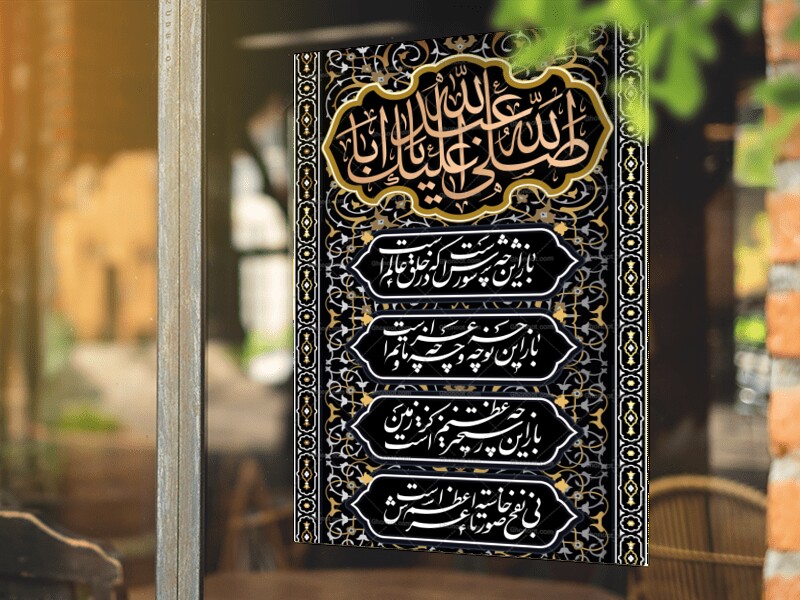 صلی الله علیک یا ابا عبدالله
باز این چه شورش است که در خلق عالم است
باز این چه نوحه و چه عزا و چه ماتم است
باز این چه رستخیز عظیم است کز زمین
بی نفخ صور خاسته تا عرش اعظم است